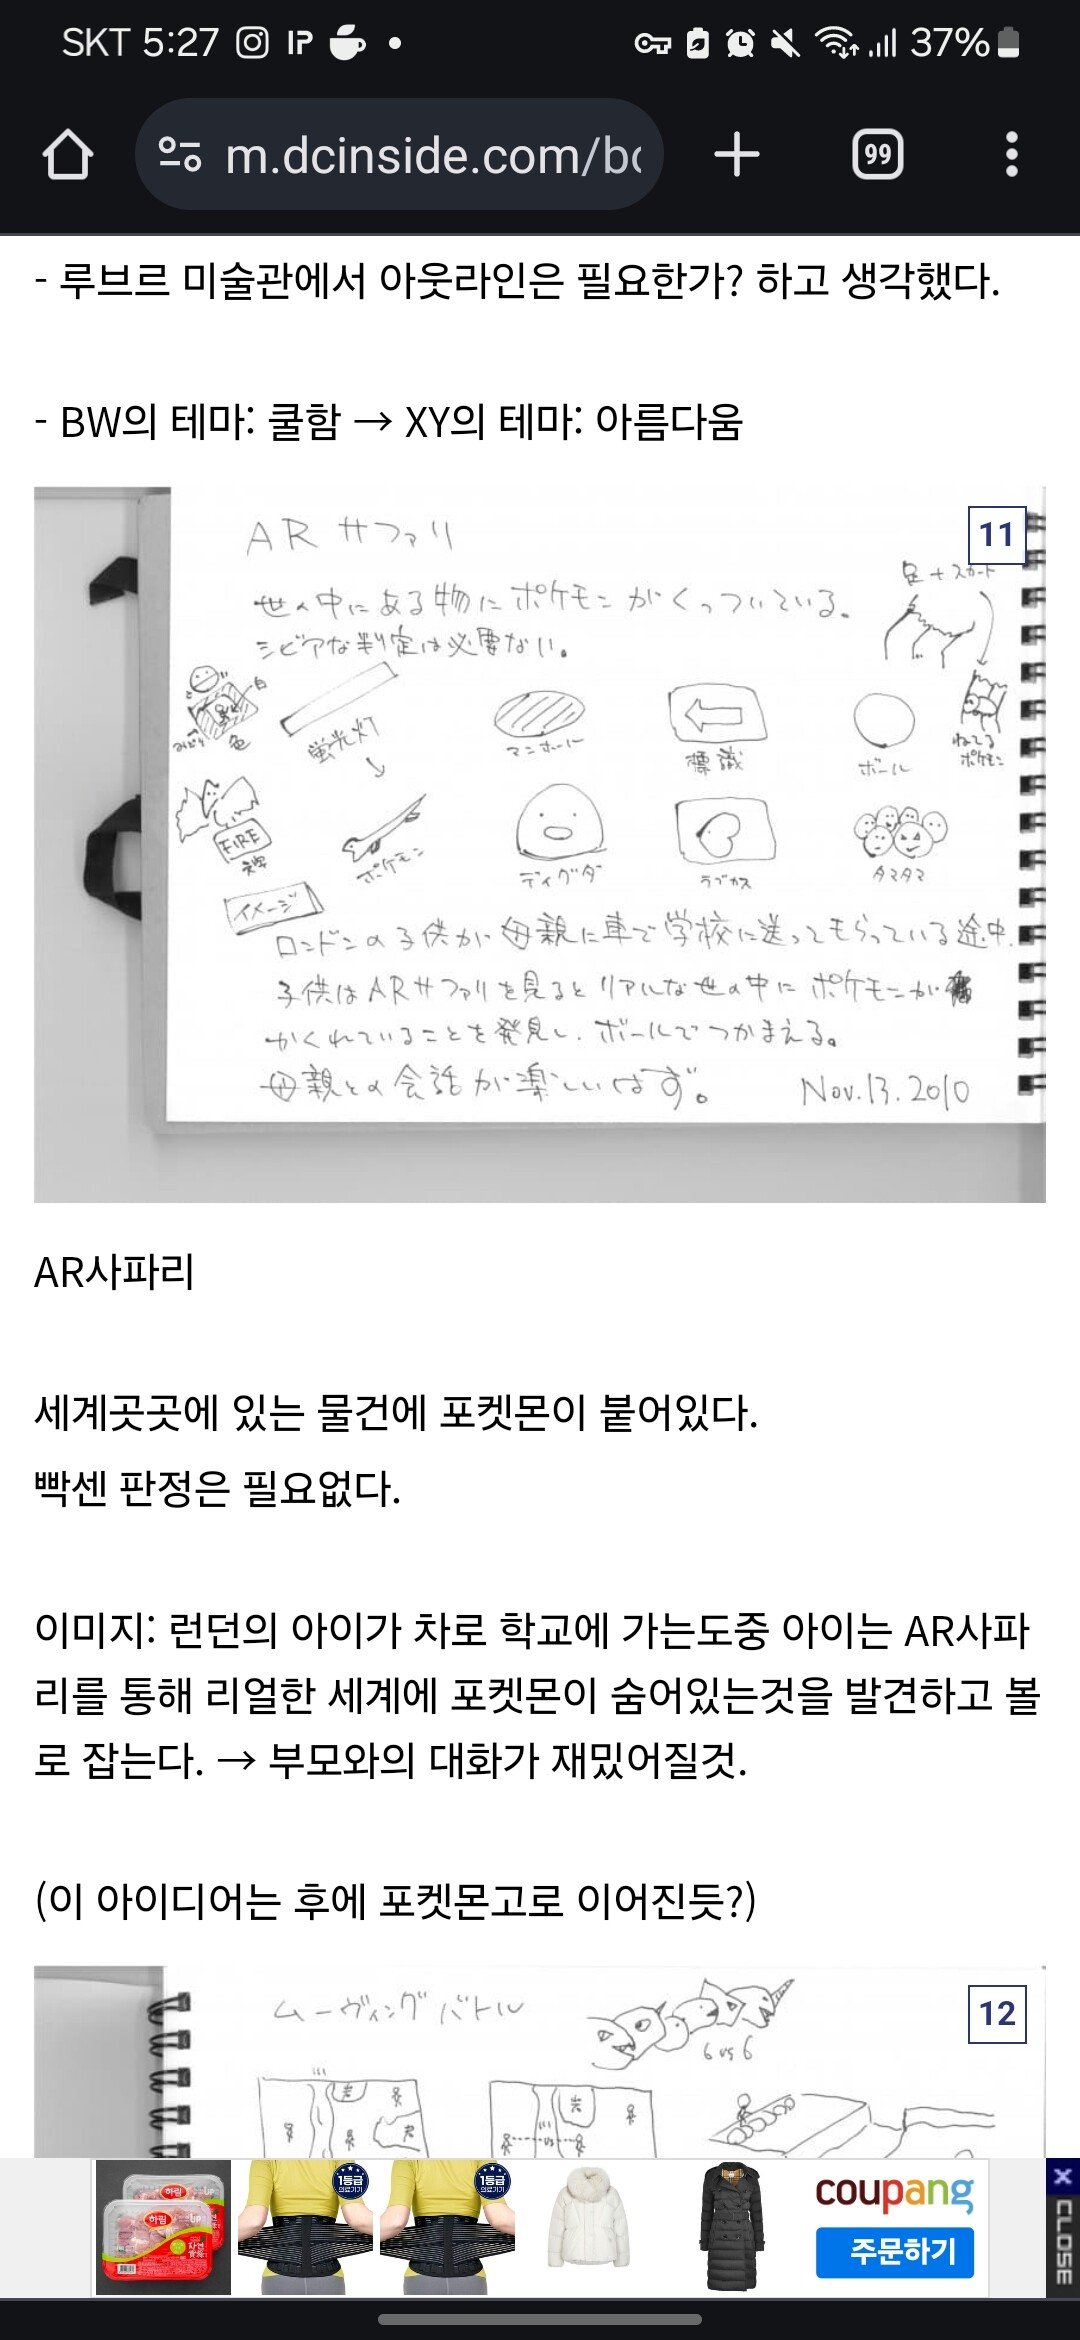 SKT 5:27
37%
m.dcinside.com/bo
99
- 루브르 미술관에서 아웃라인은 필요한가? 하고 생각했다.
- BW의 테마: 쿨함 → XY의 테마: 아름다움
11
ARサファリ
足+スカート
世の中にある物にポケモンがくっついている。
シビアな判定は必要ない。
白
みどり
色
蛍光灯
マンホール
標識
ボール
ねてる
ポケモン
FIRE
ポケモン
ディグダ
ラブカス
タマタマ
イメージ
ロンドンの子供が母親に車で学校に送ってもらっている途中.
子供はARサファリを見るとリアルな世の中にポケモンが
かくれていることを発見し、ボールでつかまえる。
母親との会話が楽しいはず。
Nov.13.2010
AR사파리
세계곳곳에 있는 물건에 포켓몬이 붙어있다.
빡센 판정은 필요없다.
이미지: 런던의 아이가 차로 학교에 가는도중 아이는 AR사파
리를 통해 리얼한 세계에 포켓몬이 숨어있는것을 발견하고 볼
로 잡는다. → 부모와의 대화가 재밌어질것.
(이 아이디어는 후에 포켓몬고로 이어진듯?)
12
ムーヴィングバトル
6 vs 6
vs
하림
하림
1등급
의료기기
1등급
의료기기
coupang
주문하기
X CLOSE